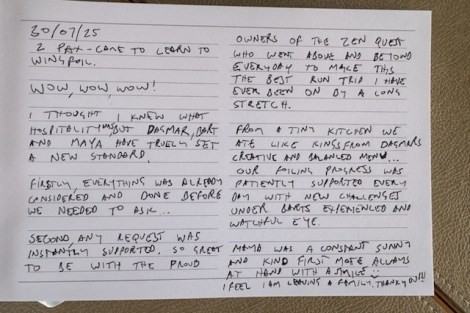 30/07/25
2 PAX - CAME TO LEARN TO
WINGFOIL.
WOW, WOW, WOW!
I THOUGHT I KNEW WHAT
HOSPITALITY WAS, BUT DAGMAR, BART
AND MAYA HAVE TRUELY SET
A NEW STANDARD.
FIRSTLY, EVERYTHING WAS ALREADY
CONSIDERED AND DONE BEFORE
WE NEEDED TO ASK...
SECOND, ANY REQUEST WAS
INSTANTLY SUPPORTED. SO GREAT
TO BE WITH THE PROUD
OWNERS OF THE ZEN QUEST
WHO WENT ABOVE AND BEYOND
EVERYDAY TO MAKE THIS
THE BEST RUN TRIP I HAVE
EVER BEEN ON BY A LONG
STRETCH.
FROM A TINY KITCHEN WE
ATE LIKE KINGS FROM DAGMARS
CREATIVE AND BALANCED MENU...
OUR FOILING PROGRESS WAS
PATIENTLY SUPPORTED EVERY
DAY WITH NEW CHALLENGES
UNDER BARTS EXPERIENCED AND
WATCHFUL EYE.
WAS A CONSTANT SUNNY
AND KIND FIRST MATE ALWAYS
AT HAND WITH A SMILE :)
I FEEL I AM LEAVING A FAMILY. THANKYOU!!!